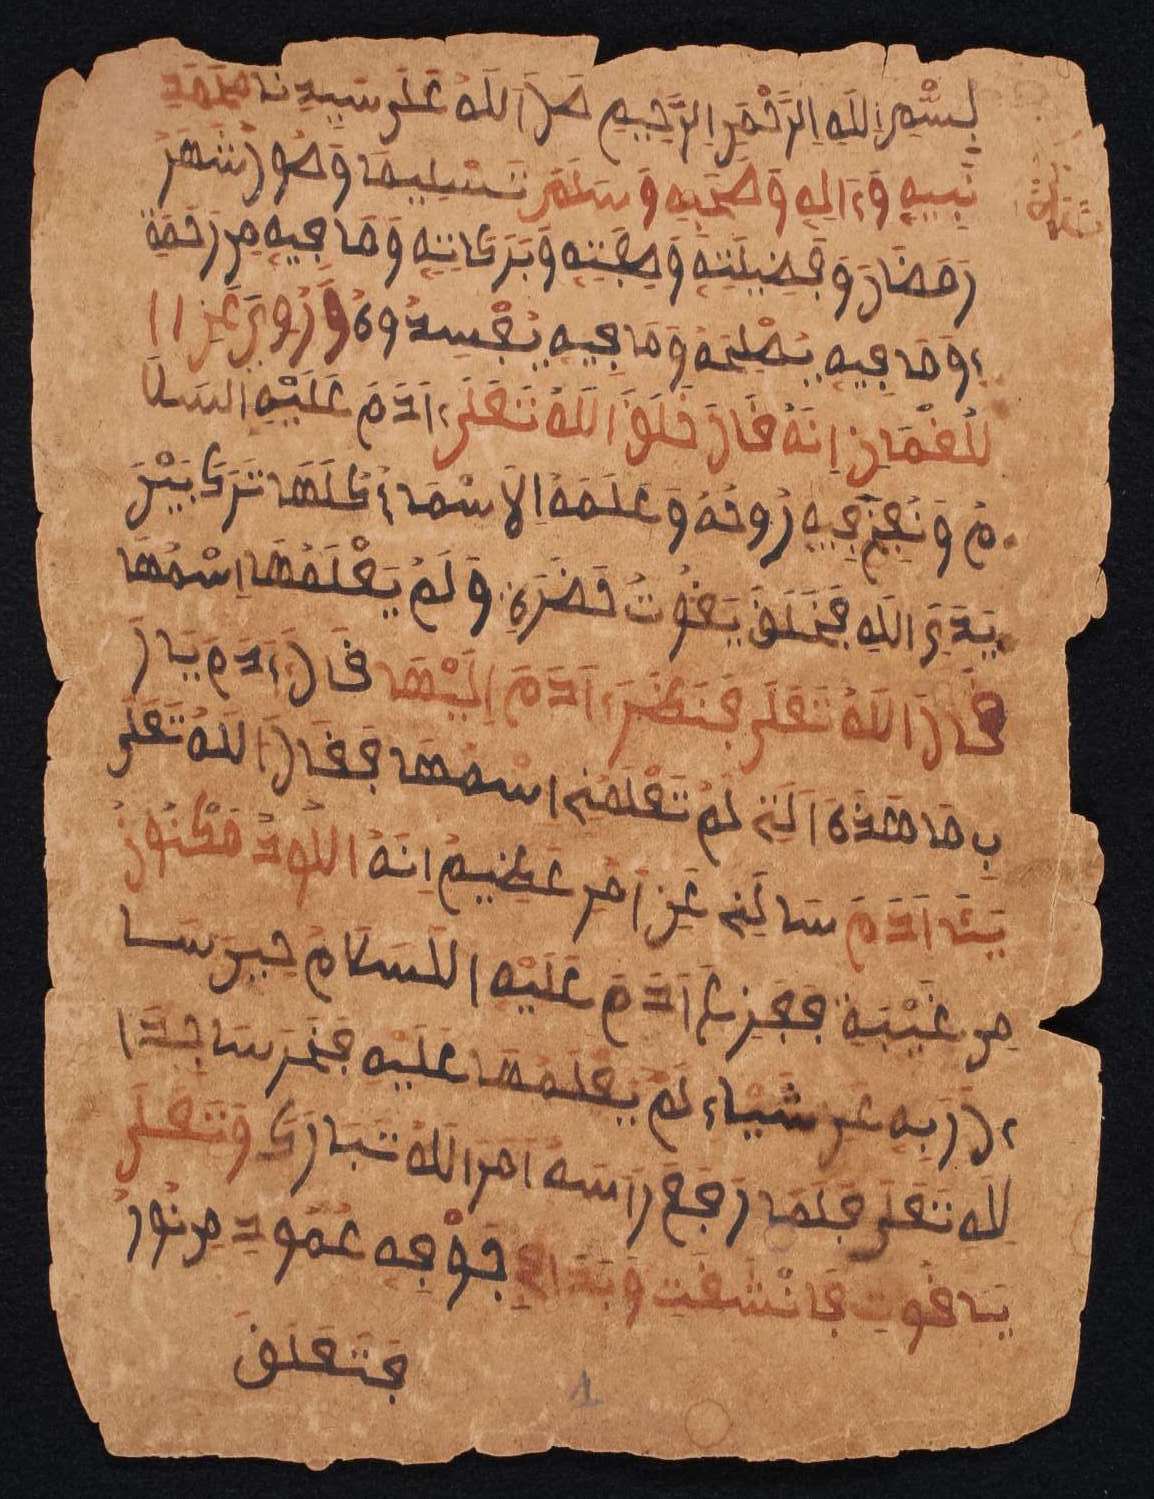 بِسْمِ اِللَّهِ اِلرَّحْمَنِ اِلرَّحِيمِ صَلَّ اَللَّهُ عَلَى سَيِّدِنَا مُحَمَّدِ
نَبِيِّهِ وَءَالِهِ وَصَحْبِهِ وَسَلَّمَ تَسْلِيمَا وَصُولُ شَهْرُ
رَمَضَانَ وَفَضِيلَتِهِ وَصِفَتِهِ وَبَرَكَاتِهِ وَمَا فِيهِ مِن رَحْمَةِ
وَمَا فِيهِ يُصْلِحُهُ وَمَا فِيهِ يُفْسِدُوهُ وَرُوِيَ عَنِ ا
لُقْمَانِ اِنَّهُ قَالَ خَلَقَ اَللَّهُ تَعَلَى ءَادَمَ عَلَيْهِ السَلَا
مُ وَنُفِخَ فِيهِ رُوحُهُ وَعَلَّمَهُ الاَسْمَاءَ كُلَّهَا تَرَكَ بَيْنَ
يَدَيَ اللَهِ فَخَلَقَ يَقُوتُ خَضْرَةٍ وَلَمْ يَعْلَمُهَا اِسْمُهَا
قَالَ اَللَّهُ تَعَلَى فَنَظَرَ ءَادَمَ اِلَيْهَا قَالَ ءَادَمَ يَارَ
بِ مَا هَذَهِ اَلَتِي لَمْ تَعْلَمْنِي اسْمُهَا فَقَالَ اَللَّهُ تَعَلَى
يَـَٔادَمَ سَالَتَنِي عَنِ اَمْرِ عَظِيمْ اِنَّهُ
مِن غَيْبَةِ فَفَزِعَ ءَادَمَ عَلَيْهِ اَلسَلَامُ حِينَ سَا
لَ رَبِّهِ عَن شَيْاءِ لَمْ يَعْلَمُهَا عَلَيْهِ فَخَرَ سَاجِدَا
لِلَهِ تَعَلَى فَلَمَّا رَفَعَ رَاسَهُ اَمَرَ اللَّهُ تَبَارَكَ وَتَعَلَى
يَاقُوتِ فَانْشَقَتِ وَبَدَا فَوْقِهِ عَمُودِ مِن نُورُ
فَتَعَلَقَ